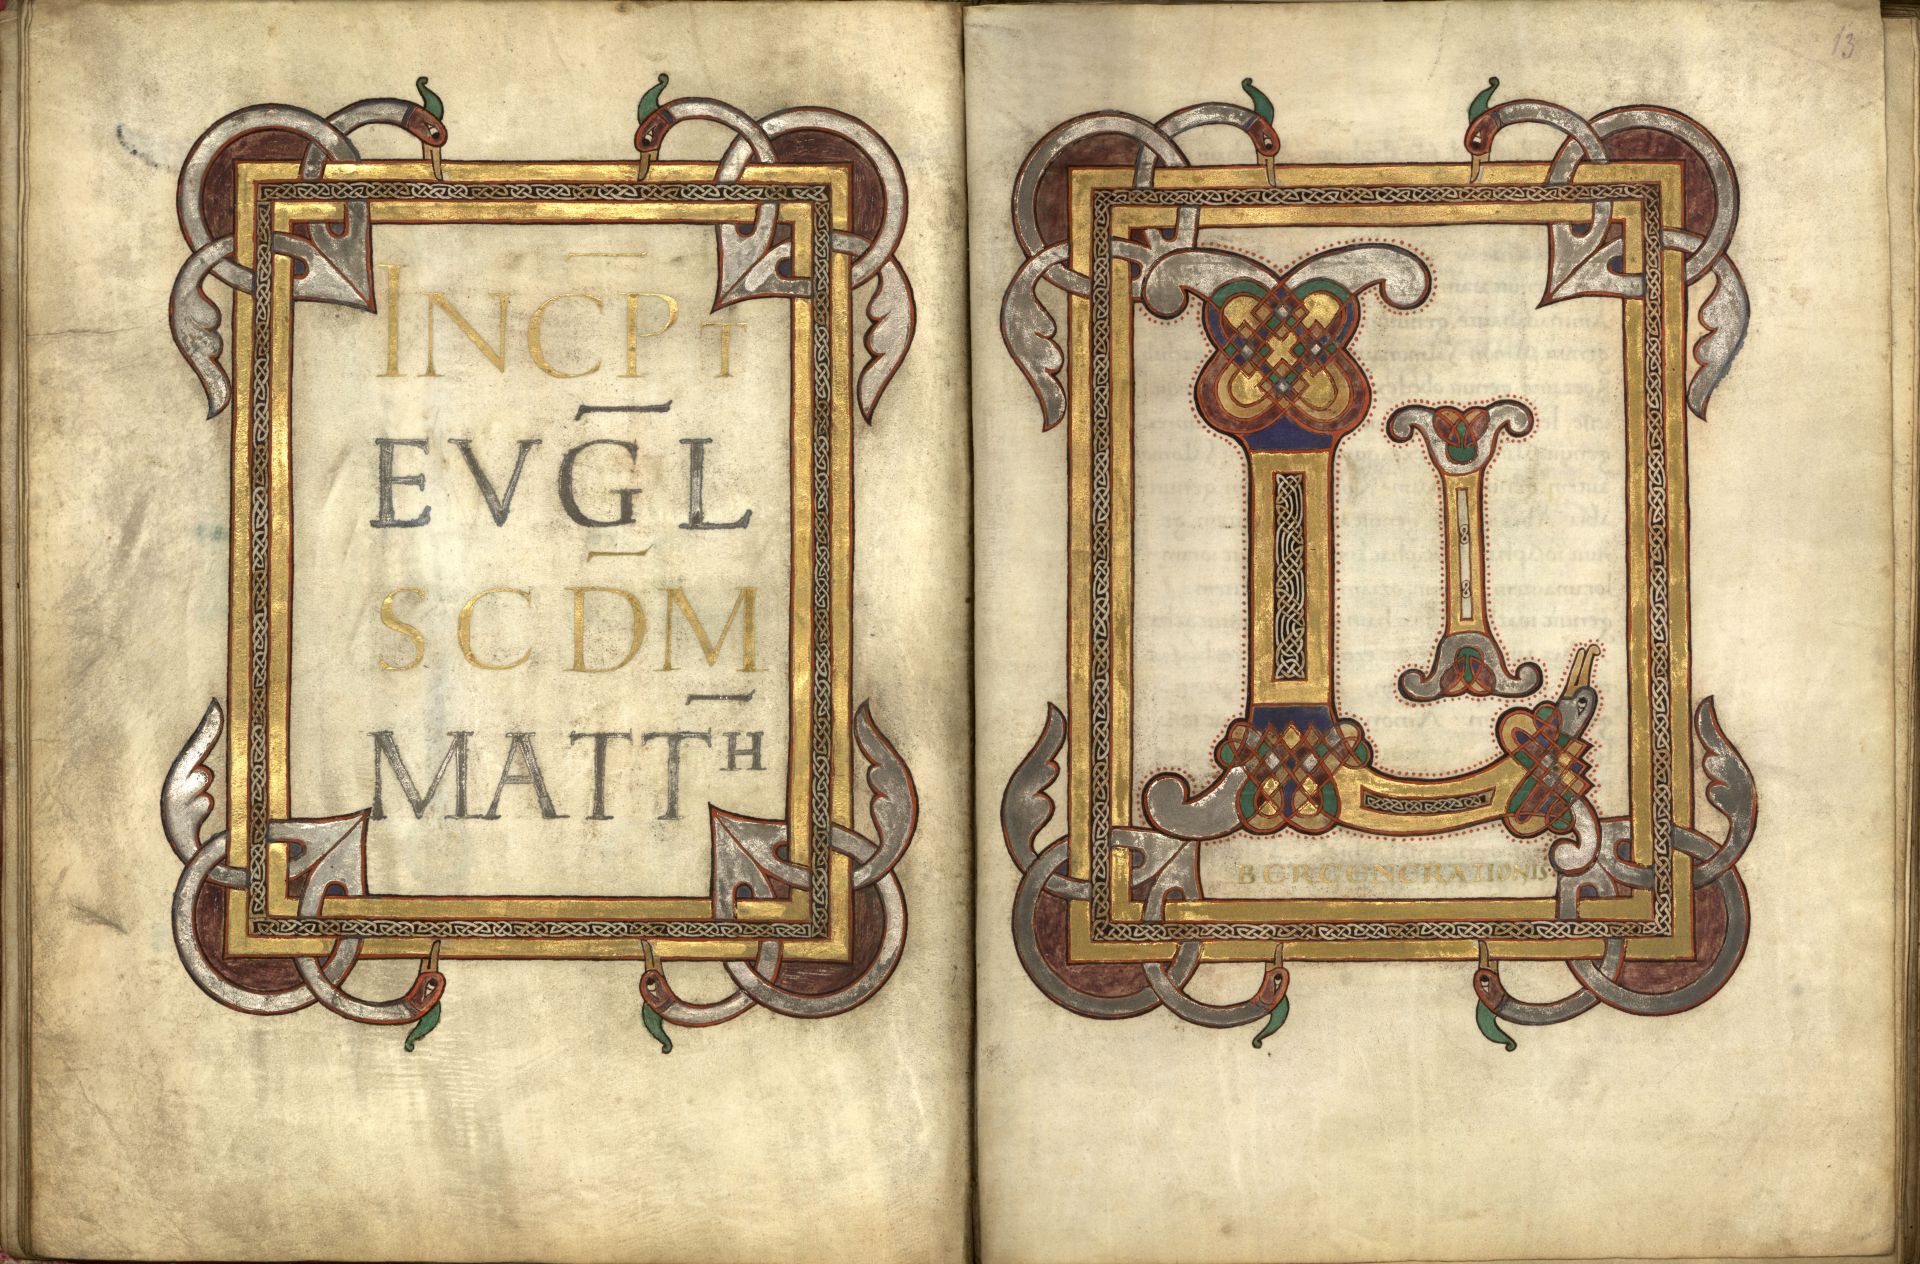 INC̅PT
EVG̅L
SCD̅M
MATT̅H
13
LI
BERGENERATIONIS